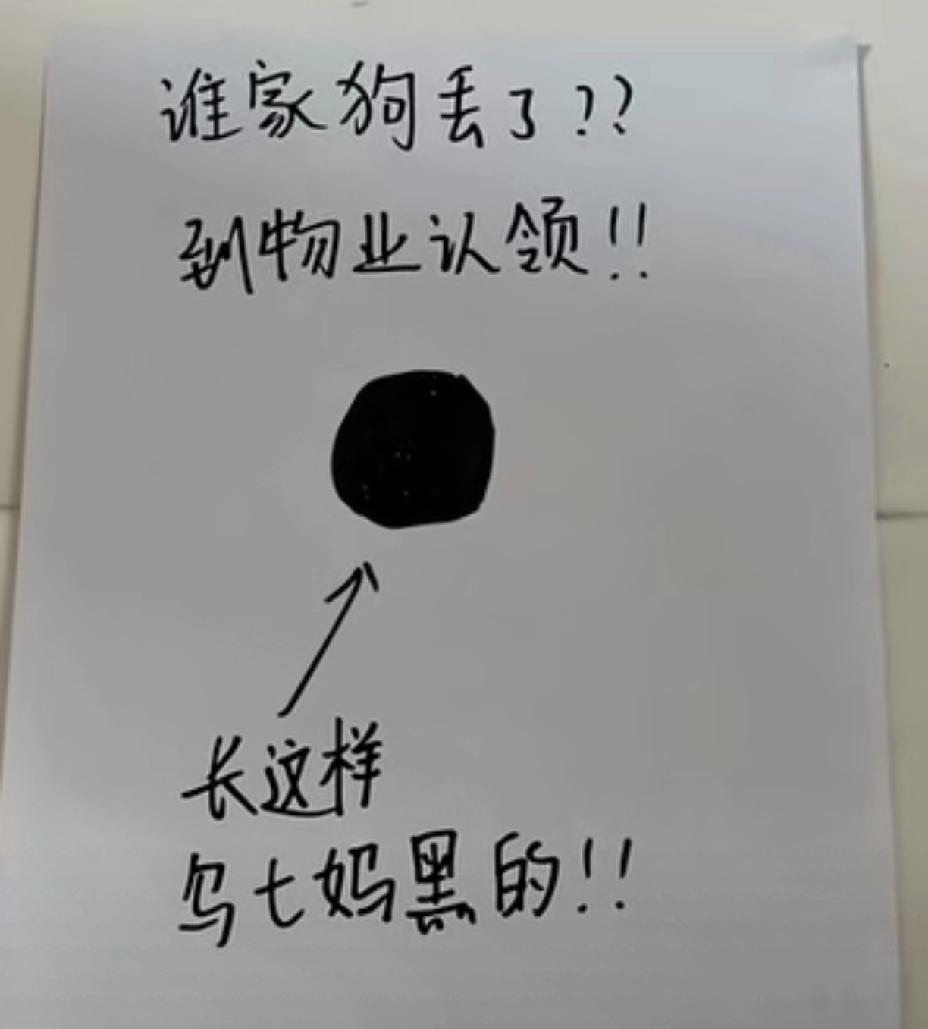 谁家狗丢了??
到物业认领!!
长这样
乌七妈黑的!!